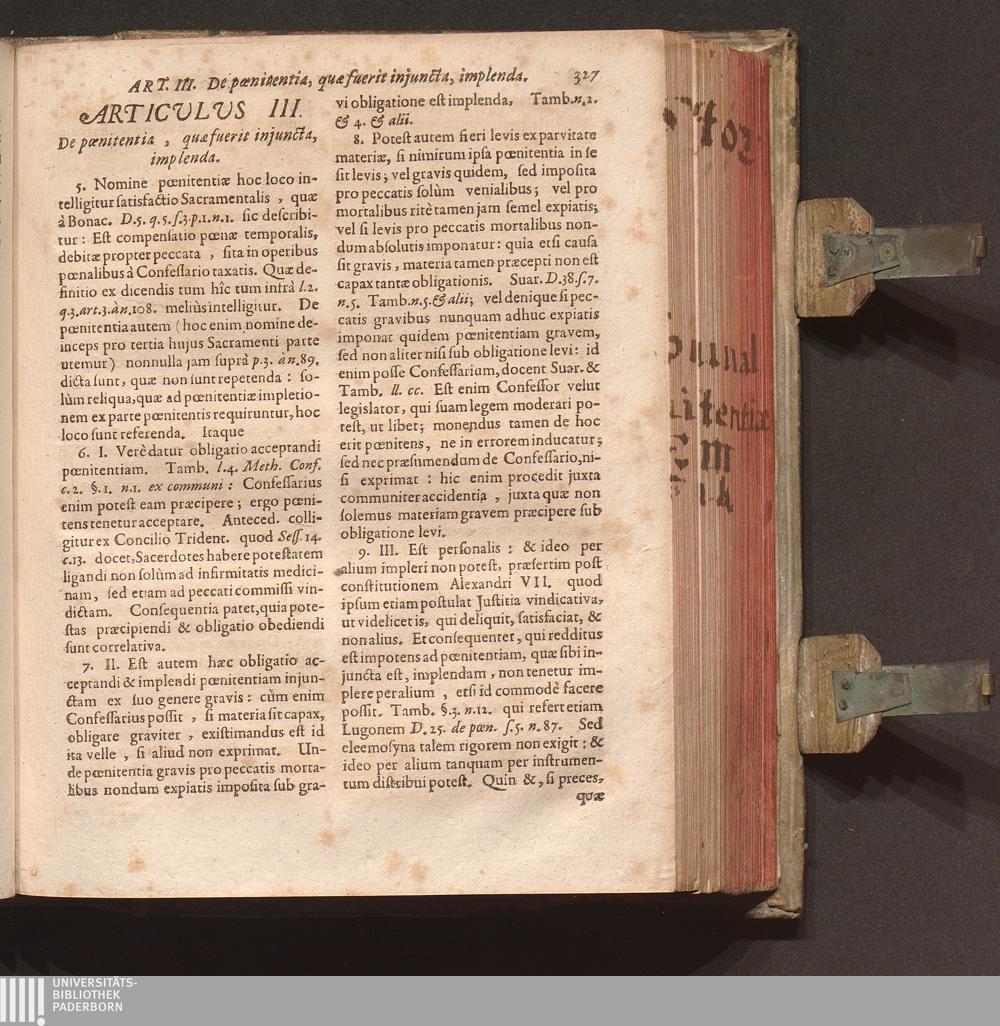 ART. III. De pœnitentia, quæ fuerit injuncta, implenda. 327
ARTICULUS III.
De pœnitentia, quæ fuerit injuncta,
implenda.
5. Nomine pœnitentiæ hoc loco in-
telligitur ſatisfactio Sacramentalis, quæ
à Bonac. D.5. q.5. ſ.3. p.1. n.1. ſic deſcribi-
tur: Eſt compenſatio pœnæ temporalis,
debitæ propter peccata, ſita in operibus
pœnalibus à Confeſſario taxatis. Quæ de-
finitio ex dicendis tum hîc tum infrà l.2.
q.3. art.3. à n.108. meliùs intelligitur. De
pœnitentia autem (hoc enim nomine de-
inceps pro tertia hujus Sacramenti parte
utemur) nonnulla jam ſuprà p.3. à n.89.
dicta ſunt, quæ non ſunt repetenda: ſo-
lùm reliqua, quæ ad pœnitentiæ impletio-
nem ex parte pœnitentis requiruntur, hoc
loco ſunt referenda. Itaque
6. I. Verè datur obligatio acceptandi
pœnitentiam. Tamb. l.4. Meth. Conf.
c.2. §.1. n.1. ex communi: Confeſſarius
enim poteſt eam præcipere; ergo pœni-
tens tenetur acceptare. Anteced. colli-
gitur ex Concilio Trident. quod Seſſ. 14.
c.13. docet, Sacerdotes habere poteſtatem
ligandi non ſolùm ad infirmitatis medici-
nam, ſed etiam ad peccati commiſſi vin-
dictam. Conſequentia patet, quia pote-
ſtas præcipiendi & obligatio obediendi
ſunt correlativa.
7. II. Eſt autem hæc obligatio ac-
ceptandi & implendi pœnitentiam injun-
ctam ex ſuo genere gravis: cùm enim
Confeſſarius poſſit, ſi materia ſit capax,
obligare graviter, exiſtimandus eſt id
ita velle, ſi aliud non exprimat. Un-
de pœnitentia gravis pro peccatis morta-
libus nondum expiatis impoſita ſub gra-
vi obligatione eſt implenda. Tamb. n.2.
& 4. & alii.
8. Poteſt autem fieri levis ex parvitate
materiæ, ſi nimirum ipſa pœnitentia in ſe
ſit levis; vel gravis quidem, ſed impoſita
pro peccatis ſolùm venialibus; vel pro
mortalibus ritè tamen jam ſemel expiatis;
vel ſi levis pro peccatis mortalibus non-
dum abſolutis imponatur: quia etſi cauſa
ſit gravis, materia tamen præcepti non eſt
capax tantæ obligationis. Suar. D.38. ſ.7.
n.5. Tamb. n.5. & alii; vel denique ſi pec-
catis gravibus nunquam adhuc expiatis
imponat quidem pœnitentiam gravem,
ſed non aliter niſi ſub obligatione levi: id
enim poſſe Confeſſarium, docent Suar. &
Tamb. ll. cc. Eſt enim Confeſſor velut
legislator, qui ſuam legem moderari po-
teſt, ut libet; monendus tamen de hoc
erit pœnitens, ne in errorem inducatur;
ſed nec præſumendum de Confeſſario, ni-
ſi exprimat: hic enim procedit juxta
communiter accidentia, juxta quæ non
ſolemus materiam gravem præcipere ſub
obligatione levi.
9. III. Eſt perſonalis: & ideo per
alium impleri non poteſt, præſertim poſt
conſtitutionem Alexandri VII. quod
ipſum etiam poſtulat Juſtitia vindicativa,
ut videlicet is, qui deliquit, ſatisfaciat, &
non alius. Et conſequenter, qui redditus
eſt impotens ad pœnitentiam, quæ ſibi in-
juncta eſt, implendam, non tenetur im-
plere per alium, etſi id commodè facere
poſſit. Tamb. §.3. n.12. qui refert etiam
Lugonem D. 25. de pœn. ſ.5. n. 87. Sed
eleemoſyna talem rigorem non exigit: &
ideo per alium tanquam per inſtrumen-
tum diſtribui poteſt. Quin &, ſi preces,
quæ
UNIVERSITÄTS-
BIBLIOTHEK
PADERBORN